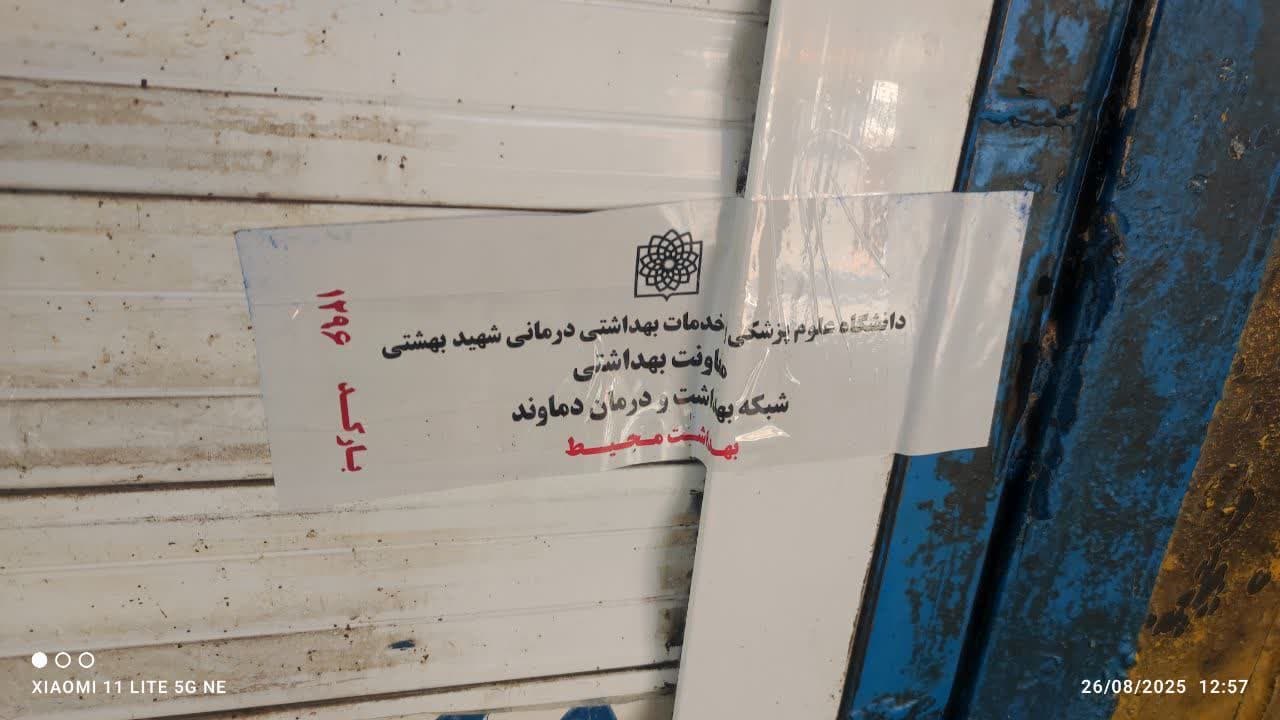 دانشگاه علوم پزشکی/خدمات بهداشتی درمانی شهید بهشتی
معاونت بهداشتی
شبکه بهداشت و درمان دماوند
بهداشت محیط
بارکد ۱۲۹۶
XIAOMI 11 LITE 5G NE
26/08/2025 12:57